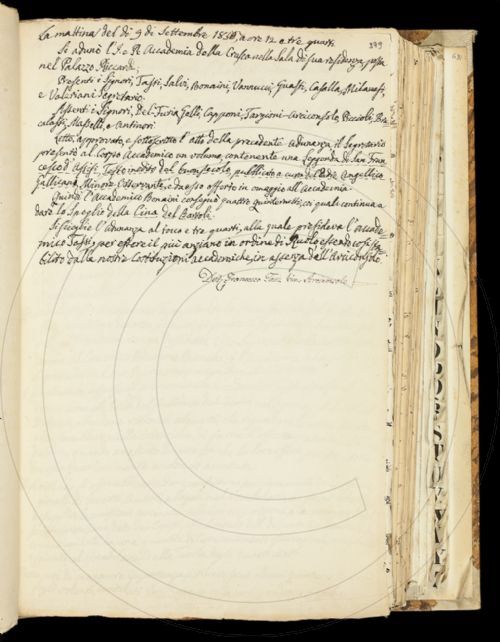 La mattina del dì 9 di Settembre a ore 12 e tre quarti
Si adunò l'I. e R. Accademia della Crusca nella Sala di sua residenza, posta
nel Palazzo Riccardi.
Presenti i Signori, Tassi, Salvi, Bonaini, Vannucci, Guasti, Casella, Milanesi,
e Valeriani Segretario.
Assenti i Signori, Del-Furia, Gelli, Capponi, Targioni-Arciconsolo, Becchi,
Masselli, e Antinori.
Letto, approvato, e sottoscritto l'atto della precedente adunanza, il Segretario
presentò al Corpo Accademico un volume, contenente una Leggenda di San Fran-
cesco d'Assisi, Testo inedito del buon secolo, pubblicato a cura del Padre Angellico
Gallicano, Minore Osservante, e da esso offerto in omaggio all'Accademia.
Quindi l'Accademico Bonaini consegnò quattro quinternetti, coi quali continua a
dare lo Spoglio della Cina del Bartoli.
Si sciolse l'Adunanza al tocco e tre quarti, alla quale presiedeva l'Accade-
mico Tassi, per essere il più anziano in ordine di Ruolo, essendo così sta-
bilito dalle nostre Costituzioni Accademiche, in assenza dell'Arciconsolo.
Dott. Francesco Tassi Arciconsolo